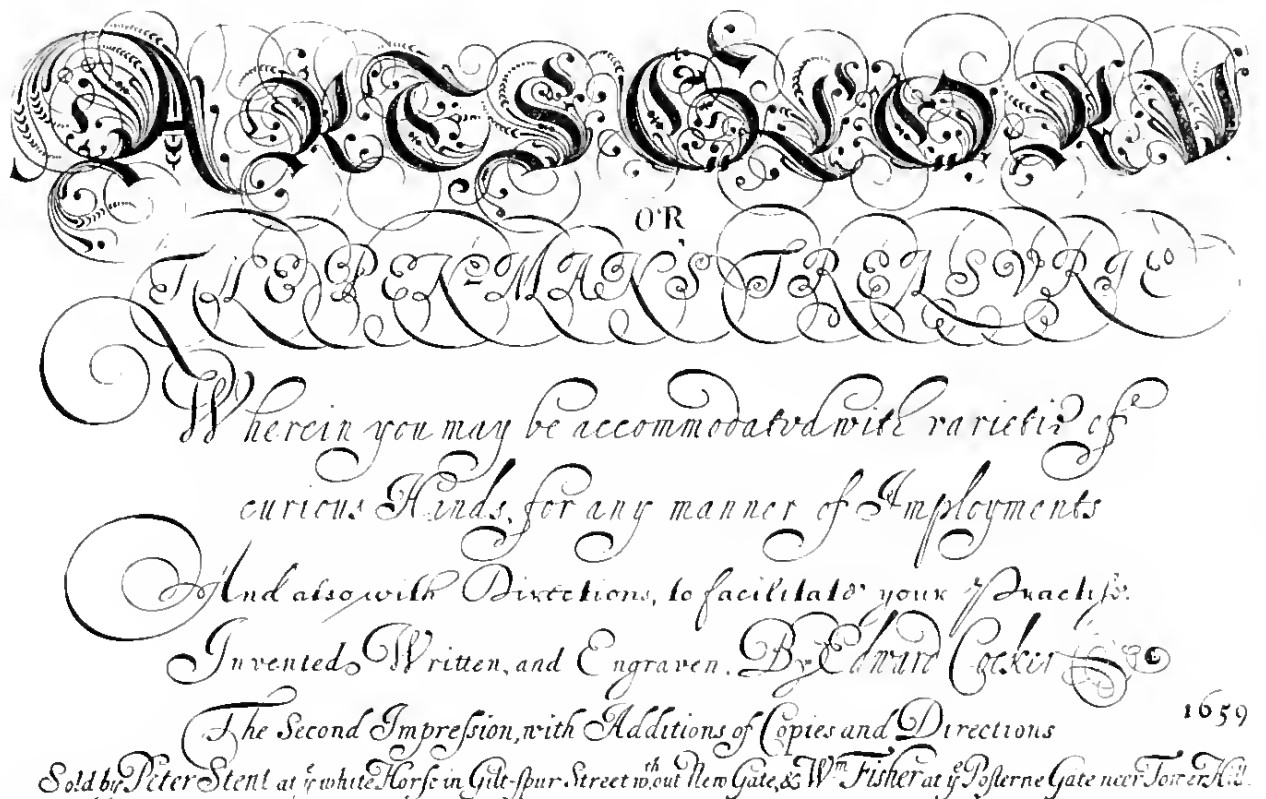 ARTS GLORY
OR
THE PEN-MAN'S TREASURIE
Wherein you may be accommodated with varietie of
curious Hands, for any manner of Imployments
And also with Directions, to facilitate your Practise.
Invented, Written, and Engraven, By Edward Cocker
1659
The Second Impression, with Additions of Copies and Directions
Sold by Peter Stent at yᵉ white Horse in Gilt-spur Street wᵗʰout New Gate, & Wᵐ Fisher at yᵉ Posterne Gate neer Tower Hill.